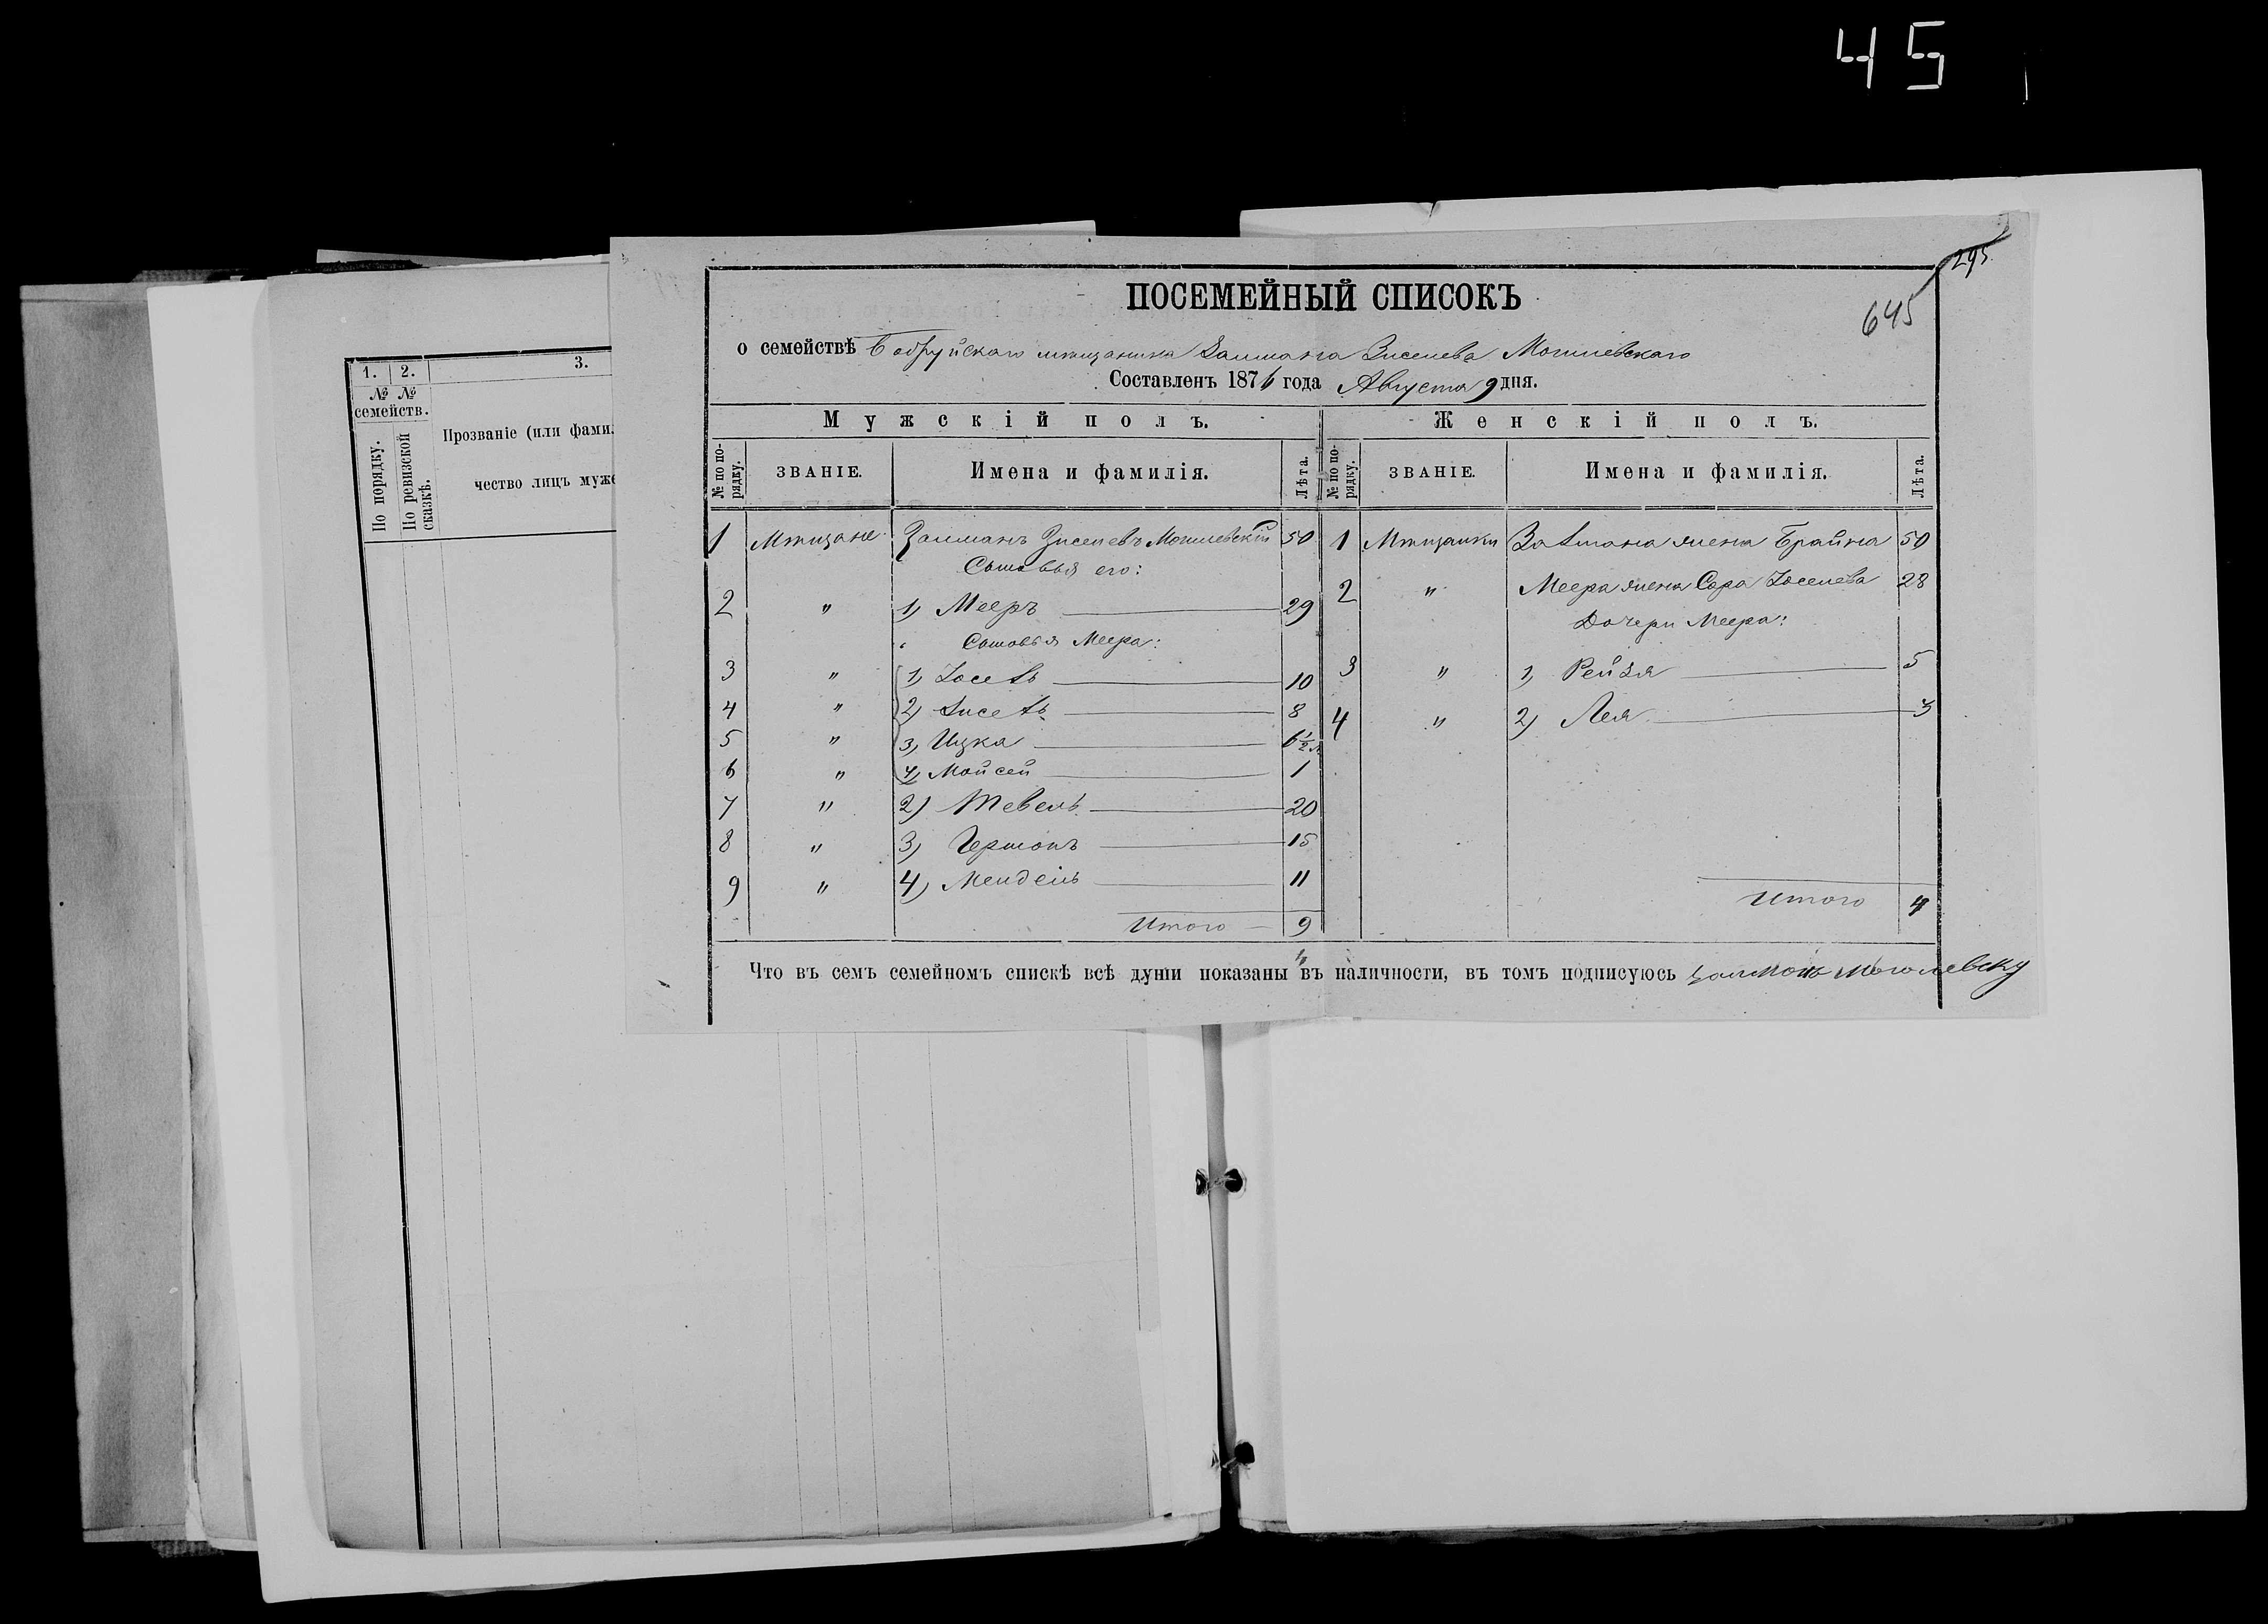 45
295
645
1. 2. 3.
№ №
семействъ.
По порядку.
По ревизской сказкѣ.
Прозваніе (или фами
чество лицъ муже
ПОСЕМЕЙНЫЙ СПИСОКЪ
о семействѣ Бобруйскаго мѣщанина Залмана Зиселева Могилевскаго
Составленъ 1876 года Августа 9 дня.
Мужскій полъ. Женскій полъ.
№ по порядку. ЗВАНІЕ. Имена и фамилія. Лѣта. № по порядку. ЗВАНІЕ. Имена и фамилія. Лѣта.
1 Мѣщане Залманъ Зиселевъ Могилевскій 50 1 Мѣщанки Залмана жена Брайна 50
Сыновья его:
2 " 1) Мееръ 29 2 " Меера жена Сора Іоселева 28
Сыновья Меера: Дочери Меера:
3 " 1) Іосель 10 3 " 1) Рейзя 5
4 " 2) Зисель 8 4 " 2) Лея 3
5 " 3) Ицка 6½
6 " 4) Мойсей 1
7 " 2) Тевель 20
8 " 3) Гершонъ 15
9 " 4) Мендель 11
Итого 9 Итого 4
Что въ семъ семейномъ спискѣ всѣ души показаны въ наличности, въ томъ подписуюсь Залмонъ Моголевску